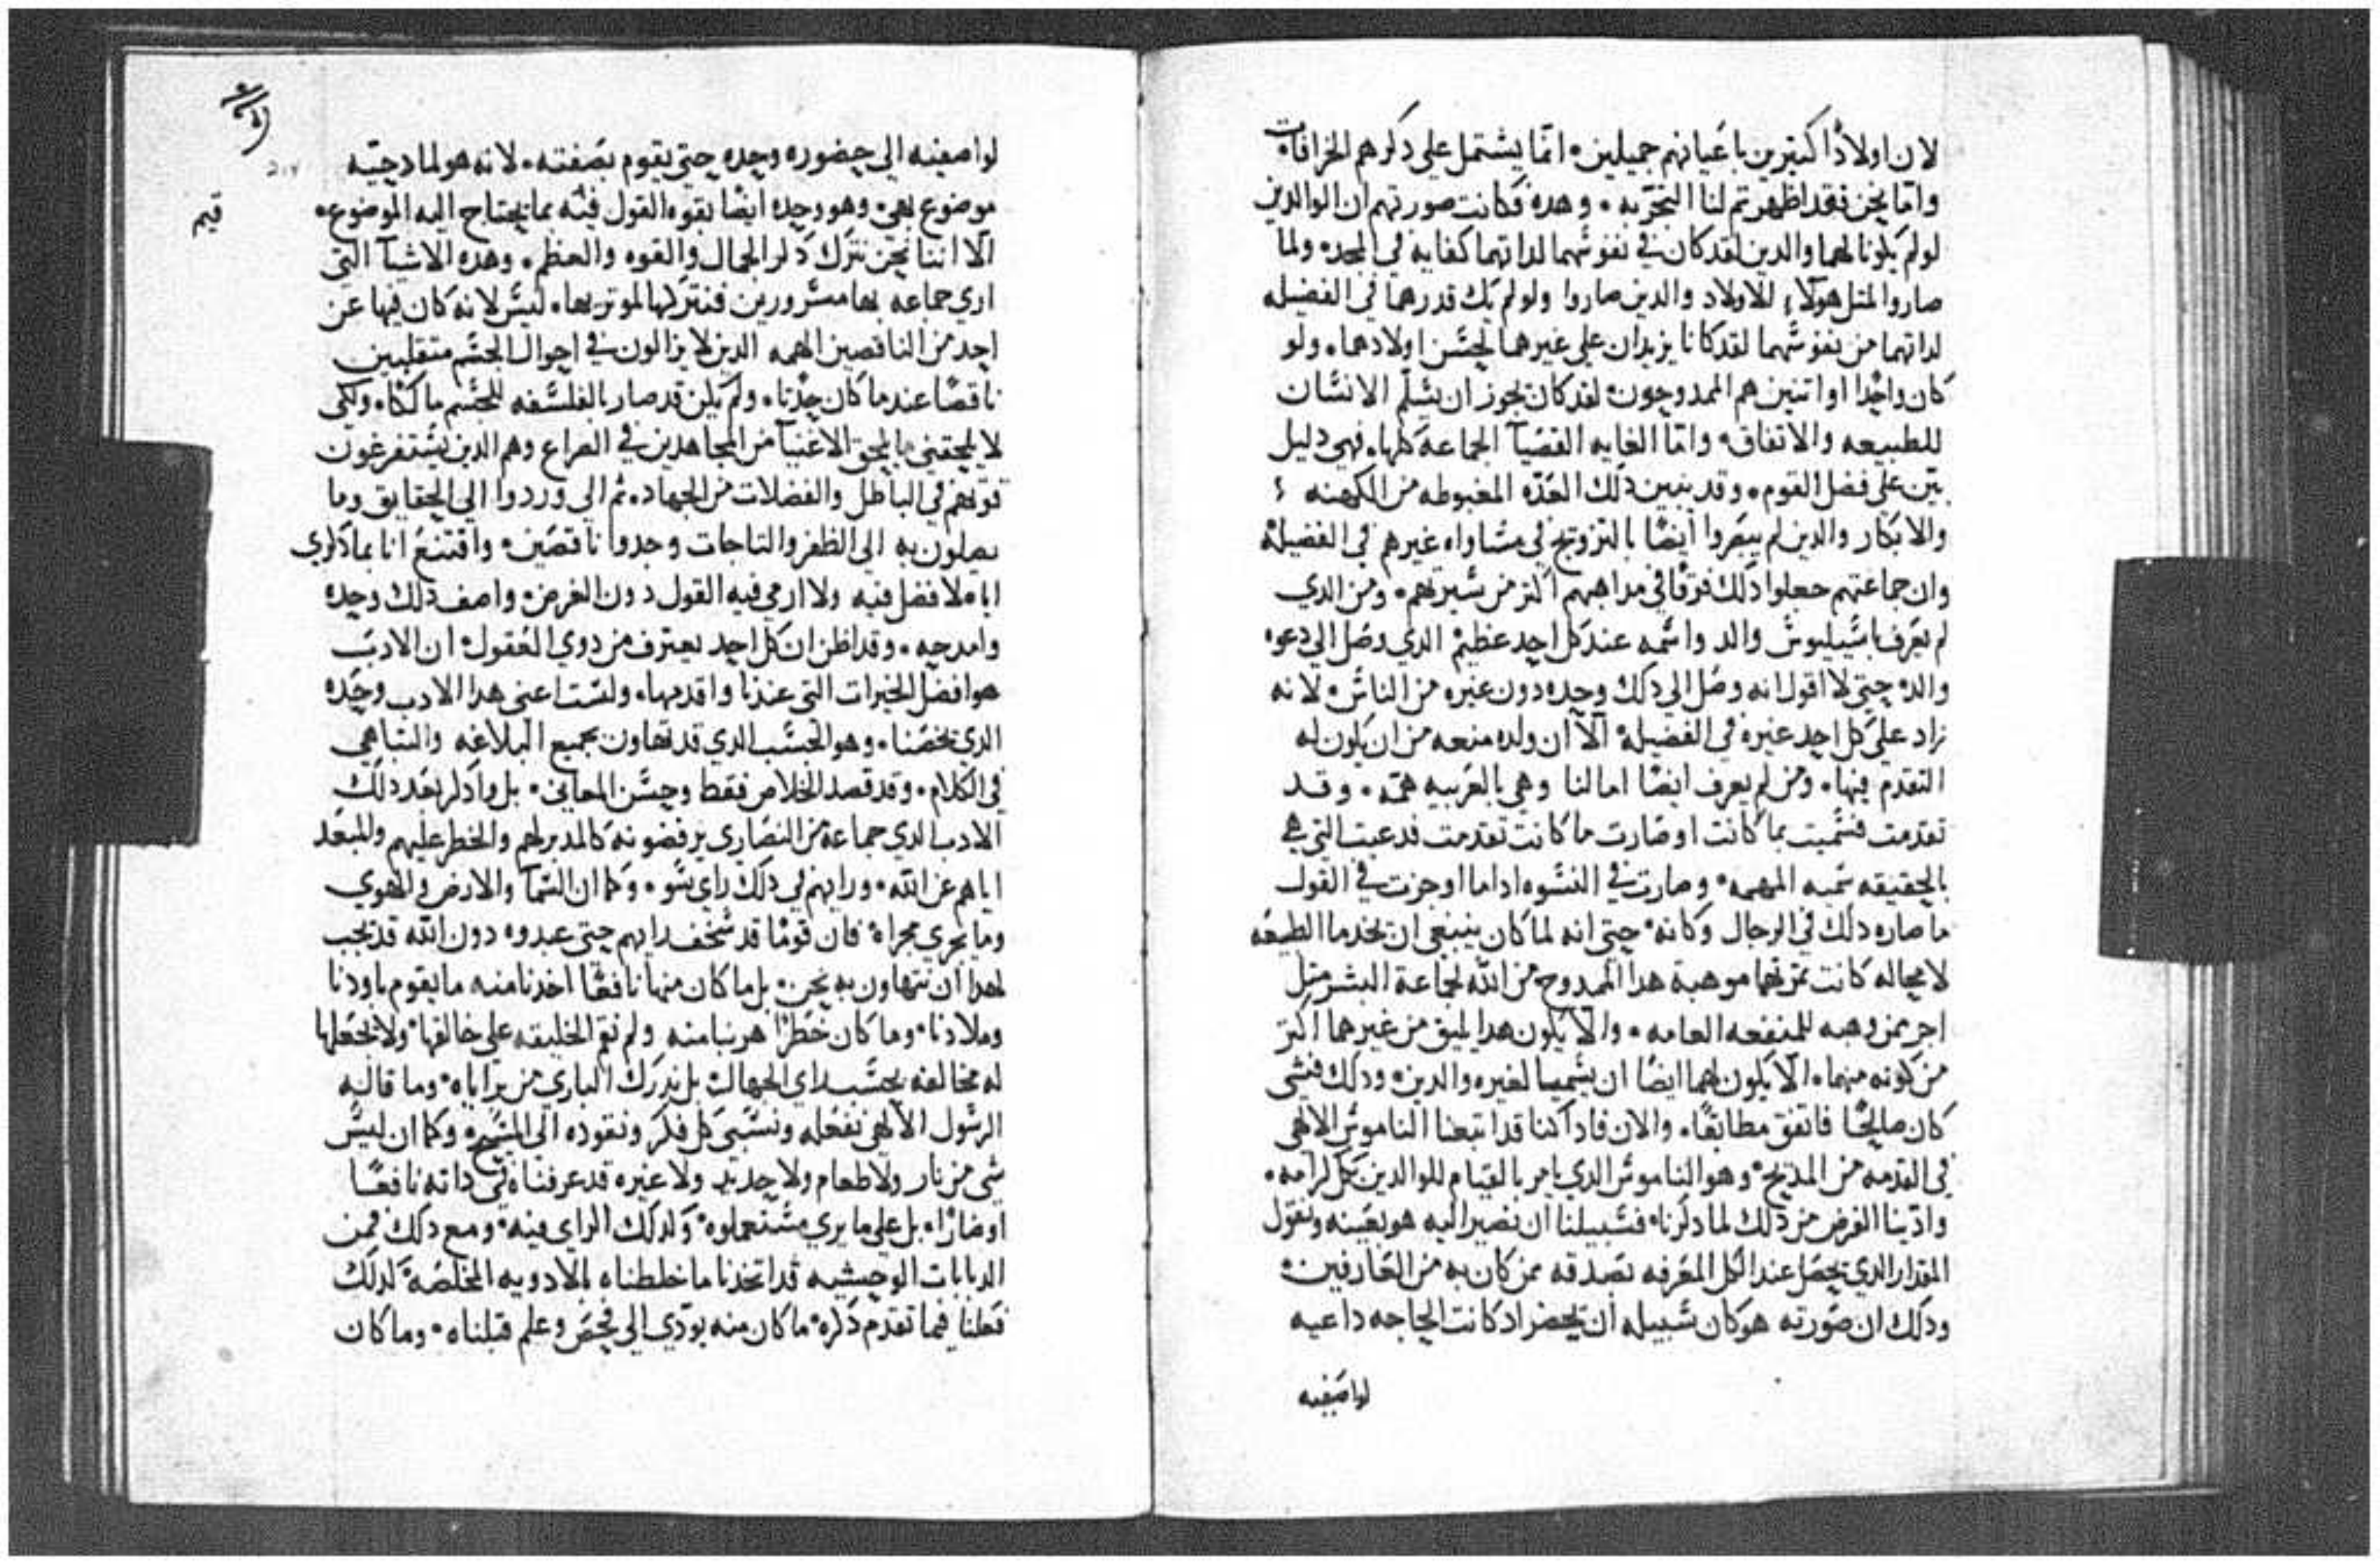 لان اولادًا كتيرين باعيانهم جميلين. انما يشتمل على دكرهم الخرافات
واما نحن فقد اظهر تم لنا التجربه. وهده فكانت صورتهم ان الوالدين
لو لم يكونا لهما والدين لقد كان في نفوسهما لداتهما كفايه في المجد. ولما
صاروا لمتل هولاء الاولاد والدين صاروا ولو لم يك قدرهما في الفضيله
لداتهما من نفوسهما لقد كانا يزيدان على غيرهما لحسن اولادهما. ولو
كان واحدا او اتنين هم الممدوحون. لقد كان يجوز ان يسلم الانسان
للطبيعه والاتفاق. واما الغايه القصيا الجماعة كلها. فهي دليل
بين على فضل القوم. وقد يبين دلك العده المغبوطه من الكهنه
والابكار والدين لم يضروا ايضًا بالتزويج في مساواه غيرهم في الفضيله
وان جماعتهم جعلوا دلك فرقا في مداهبهم اكتر من سيرتهم. ومن الدي
لم يعرف باسيليوس والد واسمه عند كل احد عظيم الدي وصل الى دعوه
والد. حتى لا اقول انه وصل الى دلك وحده دون غيره من الناس. لانه
زاد على كل احد غيره في الفضيله الا ان ولده منعه من ان يكون له
التقدم فيها. ومن لم يعرف ايضًا امالنا وهي بالعربيه همه. وقد
تقدمت فسميت بما كانت او صارت ما كانت تقدمت فدعيت التي هي
بالحقيقه سميه المهمه. وصارت في النسوه ادا ما اوجزت في القول
ما صاره دلك في الرجال وكانه. حتى انه لما كان ينبغي ان يخدما الطبيعه
لا محاله كانت تمرتهما موهبة هدا الممدوح من الله لجماعة البشر متل
اجر من وهبه للمنفعه العامه. والا يكون هدا يليق من غيرهما اكتر
من كونه منهما. الا يكون لهما ايضًا ان يسميا لغيره والدين. ودلك فشي
كان صالحًا فاتفق مطابقًا. والان فاد كنا قد اتبعنا الناموس الالاهي
في القدمه من المديح. وهو الناموس الدي يامر بالقيام للوالدين بكل كرامه.
وادينا الفرض من دلك لما دكرنا. فسبيلنا ان نصير اليه هو بعينه ونقول
المقدار الدي يحصل عند الكل المعرفه بصدقه ممن كان به من العارفين.
ودلك ان صورته هو كان سبيله ان يحضر اد كانت الحاجه داعيه
لواصفيه
لواصفيه الى حضوره وحده حتى يقوم بصفته. لانه هو لمادحيه
موضوع بهي. وهو وحده ايضًا بقوه القول فيه بما يحتاج اليه الموضوع.
الا اننا نحن نترك دكر الجمال والقوه والعظم. وهده الاشيآ التي
ارى جماعه بها مسرورين فنتركها لموتريها. ليس لانه كان فيها عن
احد من الناقصين الهمه الدين لا يزالون في احوال الجسم متقلبين
ناقصًا عند ما كان حدتا. ولم يكن قد صار بالفلسفه للجسم مالكًا. ولكي
لا يلحقني ما يلحق الاغنيآ من المجاهدين في الصراع وهم الدين يستفرغون
قوتهم في الباطل والفضلات من الجهاد. تم الى وردوا الى الحقايق وما
يصلون به الى الظفر والتاجات وجدوا ناقصين. واقتنع انا بما دكري
اياه لا فضل فيه ولا ارمي فيه القول دون الغرض. واصف دلك وحده
وامدحه. وقد اظن ان كل احد يعترف من دوي العقول. ان الادب
هو افضل الخيرات التي عندنا واقدمها. ولست اعني هدا الادب وحده
الدي يخصنا. وهو الحسب الدي قد تهاون بجميع البلاغه والتباهي
في الكلام. وقد قصد الخلاص فقط وحسن المعاني. بل وادكر بعد دلك
الادب الدي جماعة من النصارى يرفضونه كالمدبر لهم والخطر عليهم والمبعد
اياهم عن الله. ورايهم في دلك راي سو. وكما ان السمآ والارض والهوى
وما يجري مجراه. فان قومًا قد سخف رايهم حتى عبدوه دون الله قد يجب
لهدا ان نتهاون به نحن. بل ما كان منها نافعًا اخدنا منه ما يقوم باودنا
وملادنا. وما كان خطرًا هربنا منه ولم نقم الخليقه على خالقها. ولا نجعلها
له مخالفه بحسب راي الجهال. بل ندرك الباري من براياه. وما قاله
الرسول الالاهي نفعله ونسبي كل فكر ونقوده الى المسيح. وكما ان ليس
شي من نار ولا طعام ولا حديد ولا غيره قد عرفناه في داته نافعًا
او ضارًا. بل على ما يرى مستعملوه. كدلك الراي فيه. ومع دلك فمن
الدبابات الوحشيه قد اتخدنا ما خلطناه بالادويه المخلصة كدلك
فعلنا فيما تقدم دكره. ما كان منه يودي الى فحص وعلم قبلناه. وما كان